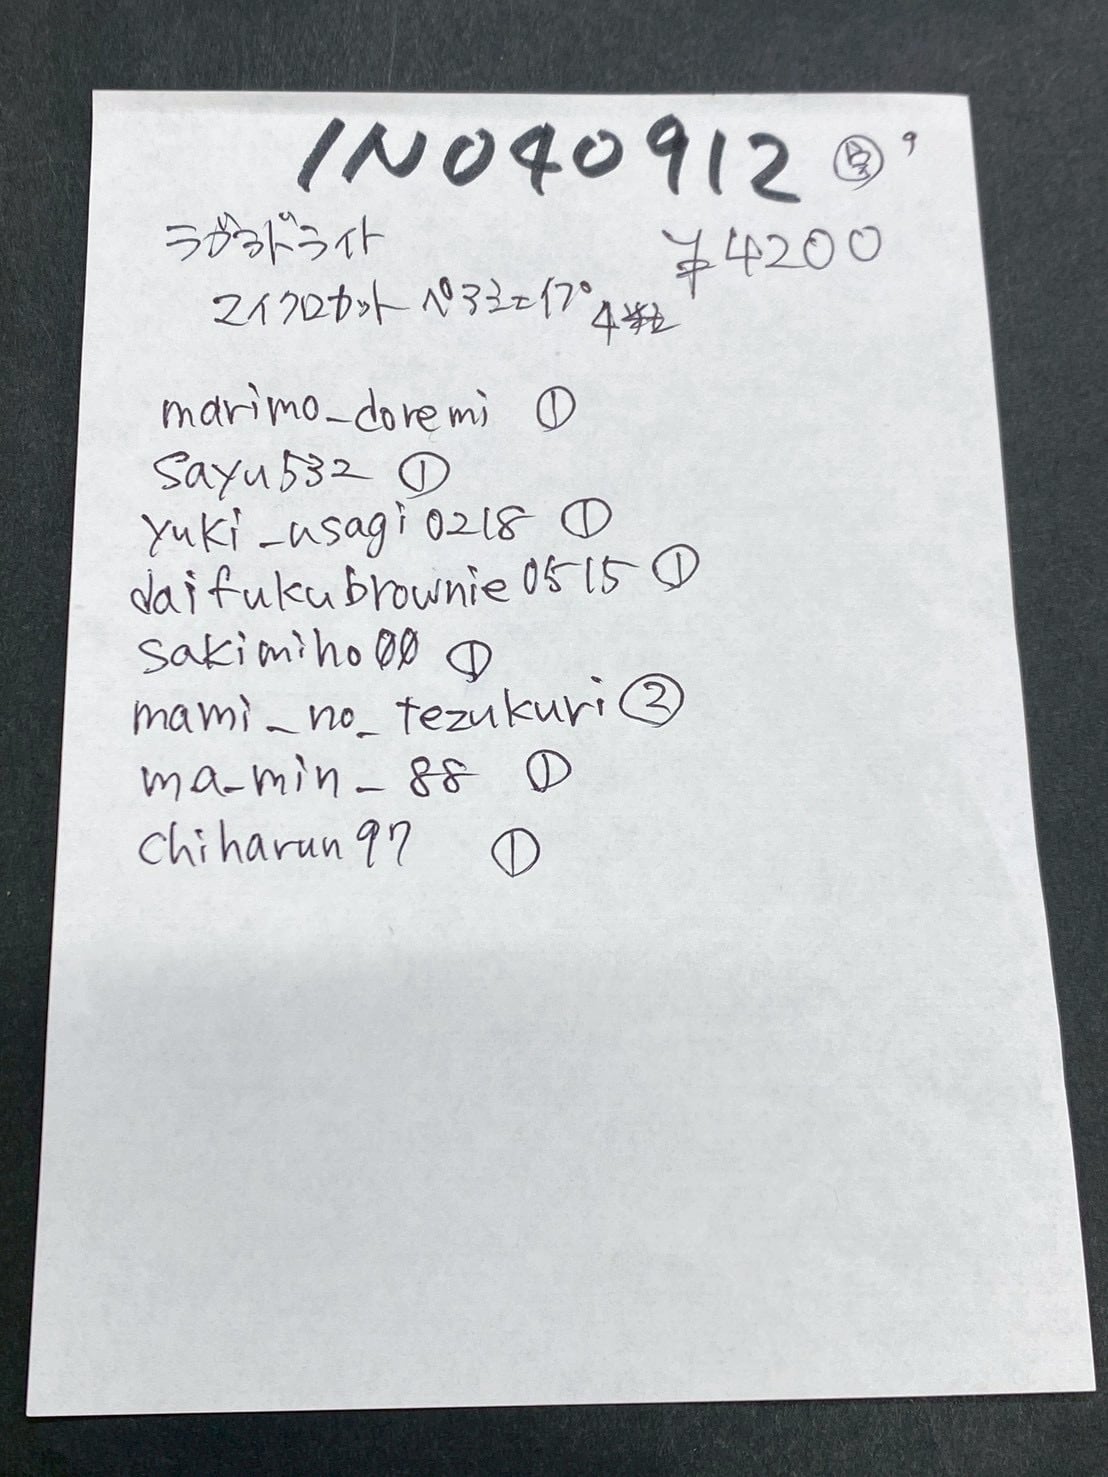 IN040912 9
ラブラドライト ¥4200
マイクロカット ペアシェイプ 4粒
marimo_doremi ①
sayu532 ①
yuki_usagi0218 ①
daifukubrownie0515 ①
sakimiho00 ①
mami_no_tezukuri ②
ma_min_88 ①
chiharun97 ①